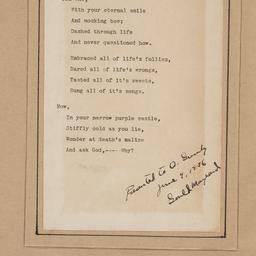 With your eternal smile
And mocking bow;
Dashed through life
And never questioned how.
Embraced all of life's follies,
Dared all of life's wrongs,
Tasted all of it's sweets,
Sung all of it's songs.
Now,
In your narrow purple castle,
Stiffly cold as you lie,
Wonder at death's malice
And ask God,---- Why?
Presented to A.
June 4, 1936